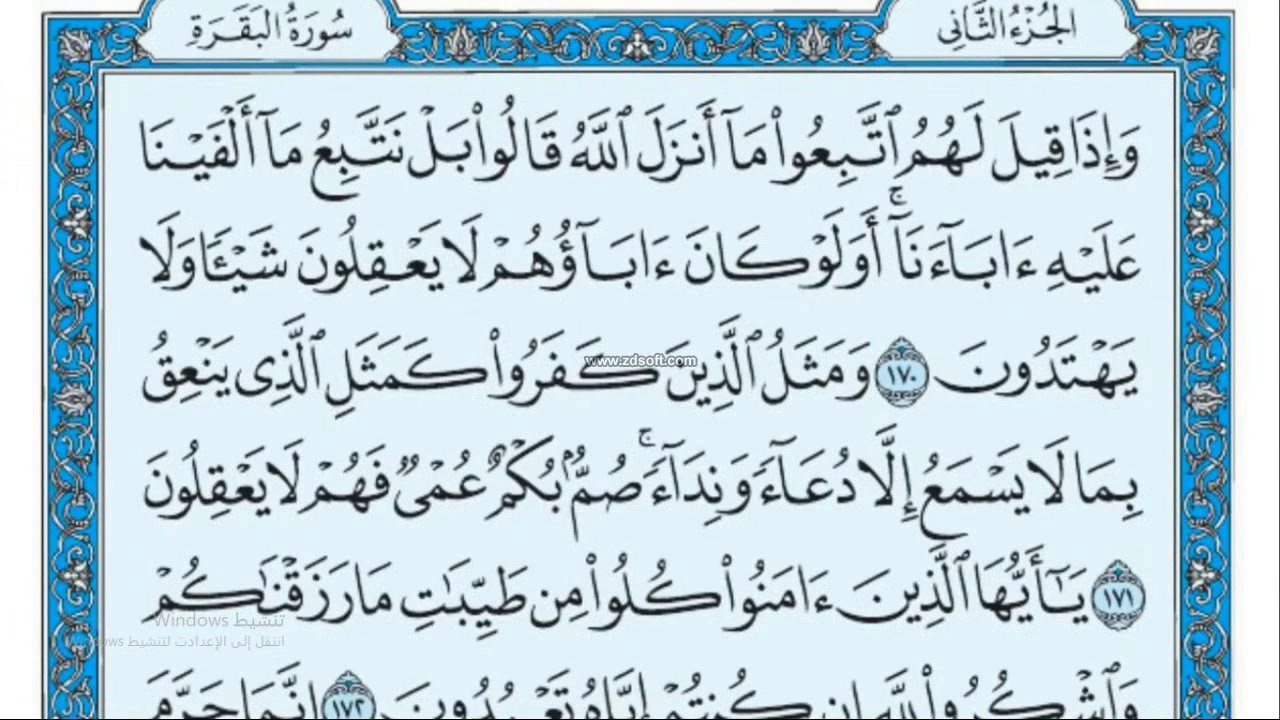 الجُزْءُ الثَّانِي
سُورَةُ البَقَرَةِ
وَإِذَا قِيلَ لَهُمُ ٱتَّبِعُوا۟ مَآ أَنزَلَ ٱللَّهُ قَالُوا۟ بَلْ نَتَّبِعُ مَآ أَلْفَيْنَا
عَلَيْهِ ءَابَآءَنَآ ۚ أَوَلَوْ كَانَ ءَابَآؤُهُمْ لَا يَعْقِلُونَ شَيْـًٔا وَلَا
يَهْتَدُونَ ١٧٠ وَمَثَلُ ٱلَّذِينَ كَفَرُوا۟ كَمَثَلِ ٱلَّذِى يَنْعِقُ
www.zdsoft.com
بِمَا لَا يَسْمَعُ إِلَّا دُعَآءً وَنِدَآءً ۚ صُمٌّۢ بُكْمٌ عُمْىٌ فَهُمْ لَا يَعْقِلُونَ
١٧١ يَـٰٓأَيُّهَا ٱلَّذِينَ ءَامَنُوا۟ كُلُوا۟ مِن طَيِّبَـٰتِ مَا رَزَقْنَـٰكُمْ
تنشيط Windows
انتقل إلى الإعدادت لتنشيط Windows
وَٱشْكُرُوا۟ لِلَّهِ إِن كُنتُمْ إِيَّاهُ تَعْبُدُونَ ١٧٢ إِنَّمَا حَرَّمَ